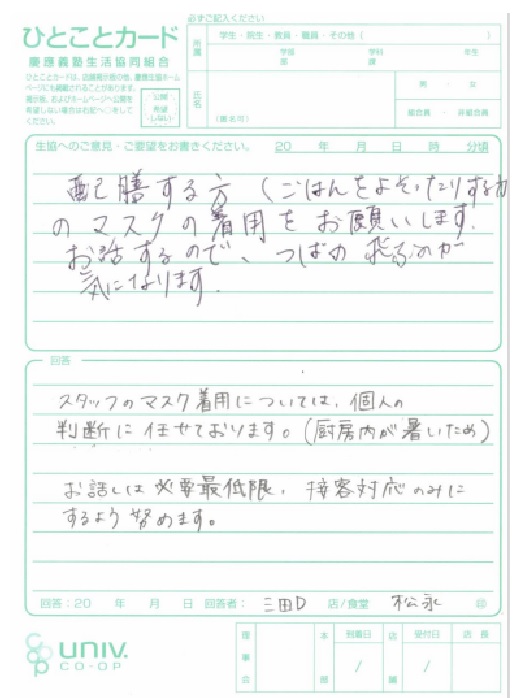 必ずご記入ください
ひとことカード
慶應義塾生活協同組合
ひとことカードは、店頭掲示板の他、慶應生協ホーム
ページにも掲載されることがあります。
掲示板、およびホームページへ公開を
希望しない場合は右記へ○をして
ください。
公開
希望
しない
所属
学生・院生・教員・職員・その他（　　）
学部
学科
年生
氏名
（匿名可）
男・女
組合員・非組合員
生協へのご意見・ご要望をお書きください。 20 年 月 日 時 分頃
配膳する方（ごはんをよそったりする方
のマスクの着用をお願いします.
お話するので、つばの飛ぶのが
気になります.
回答
スタッフのマスク着用については、個人の
判断に任せております。（厨房内が暑いため）
お話しは必要最低限、接客対応のみに
するよう努めます。
回答：20 年 月 日 回答者： 三田D 店/食堂 松永 ㊞
UNIV.
CO-OP
理事会
本部
到着日
/
店舗
受付日
/
店長